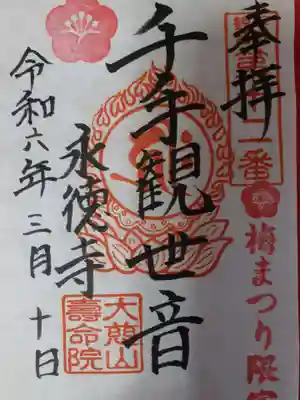 奉拝
一番
梅まつり限定
千手観世音
永徳寺
大慈山
壽命院
令和六年三月十日